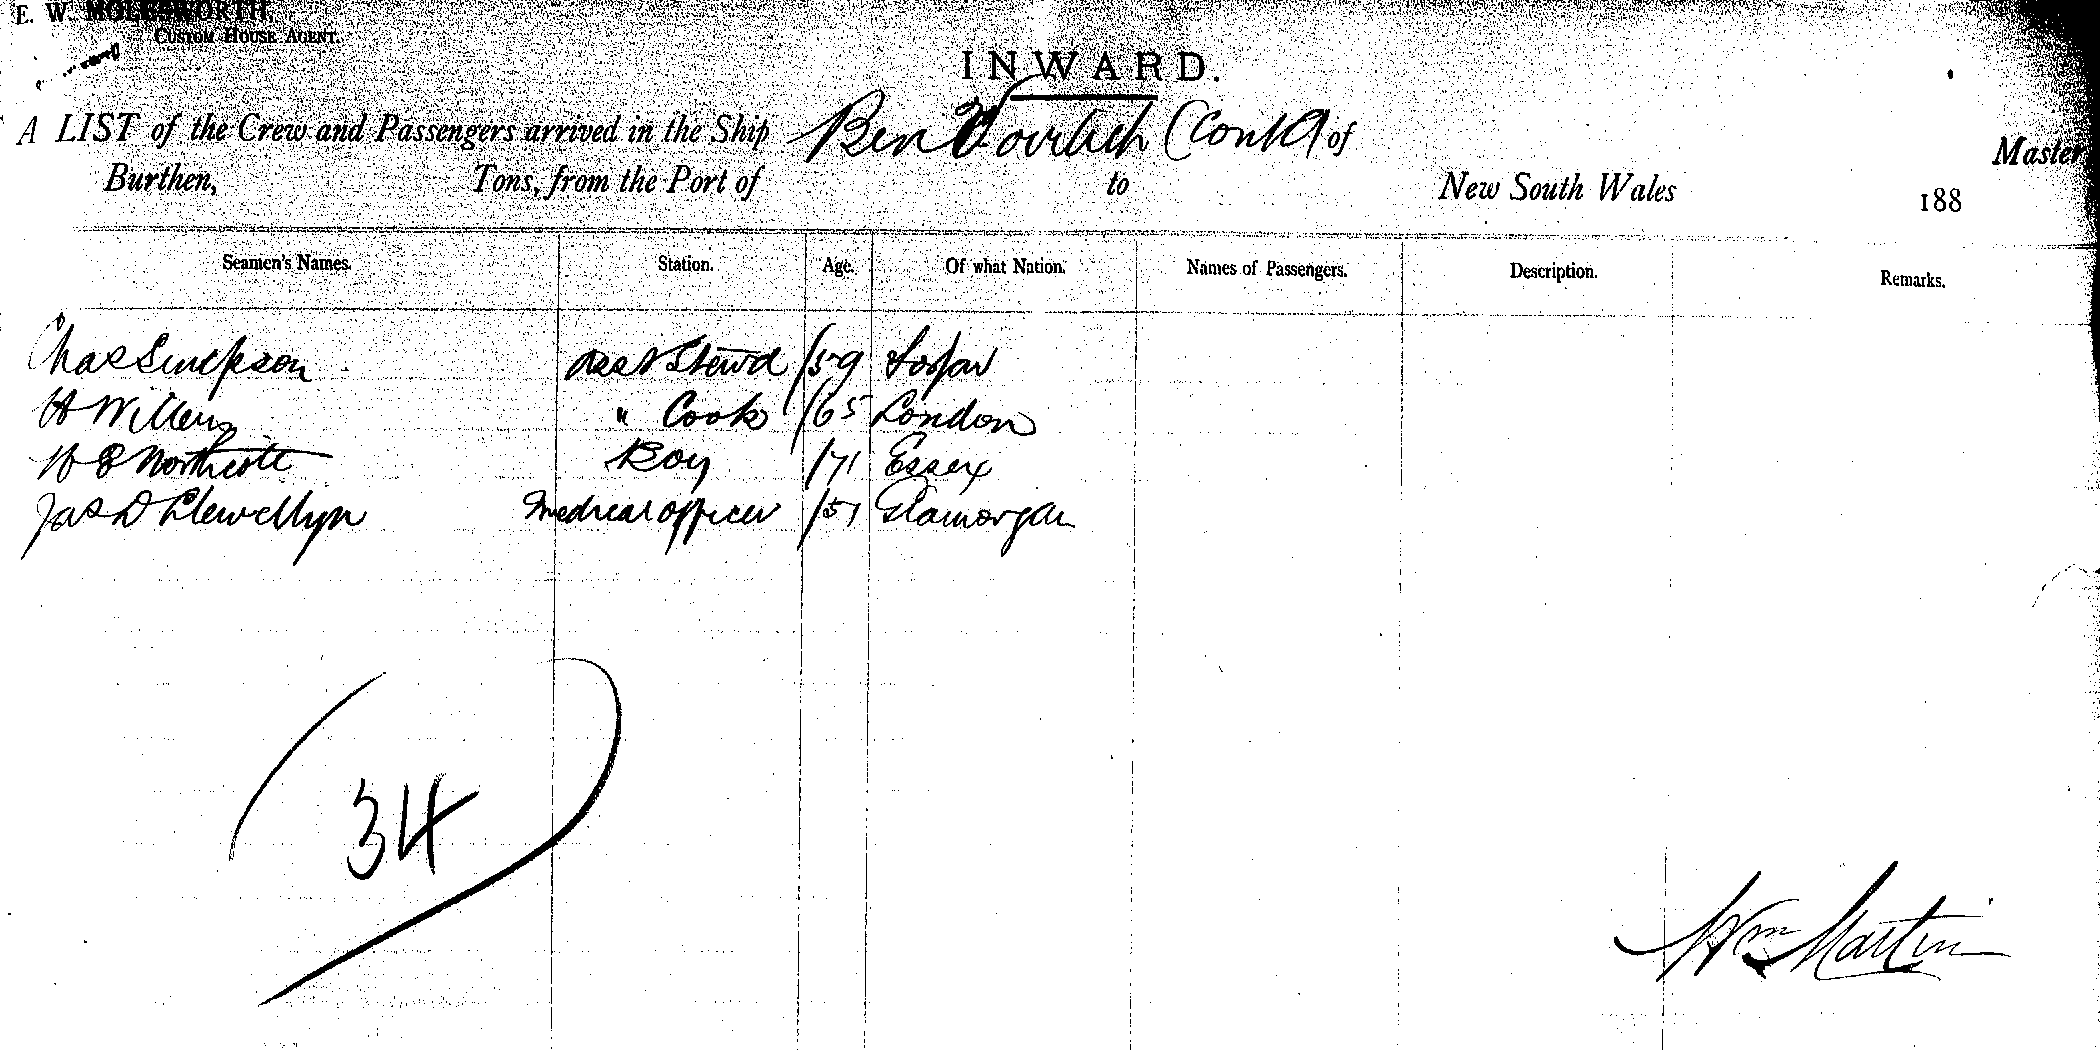 E. W. MOLESWORTH,
CUSTOM HOUSE AGENT.
INWARD.
A LIST of the Crew and Passengers arrived in the Ship Ben Voirlich (Contd) of Master
Burthen, Tons, from the Port of to New South Wales 188
Seamen's Names. Station. Age. Of what Nation. Names of Passengers. Description. Remarks.
Chas Simpson Asst Stewd /59 Forfar
H Willens " Cook /65 London
H E Northcote Boy /71 Essex
Jas D Llewellyn Medical officer /51 Glamorgan
34
Wm Martin